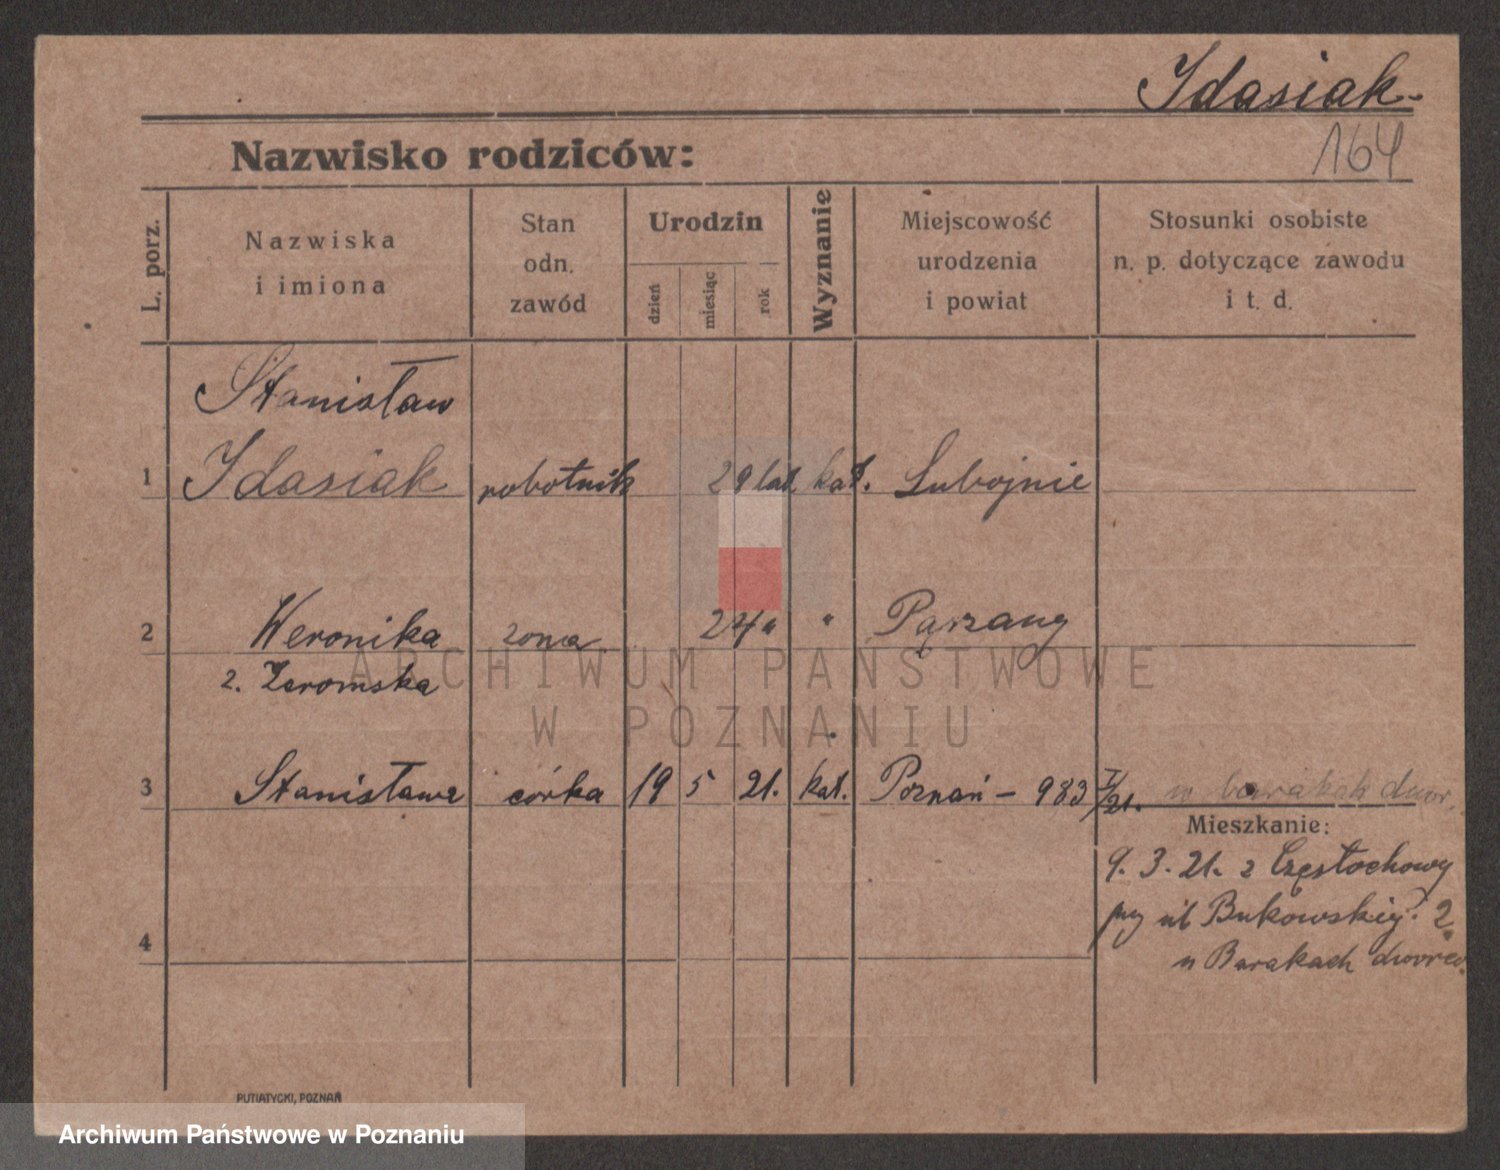 Idasiak
164
Nazwisko rodziców:
L. porz.
Nazwiska
i imiona
Stan
odn.
zawód
Urodzin
dzień
miesiąc
rok
Wyznanie
Miejscowość
urodzenia
i powiat
Stosunki osobiste
n. p. dotyczące zawodu
i t. d.
Stanisław
1 Idasiak robotnik 29 lat kat. Lubojnie
2 Weronika żona 24 " "
z. Żeromska
3 Stanisława córka 19 5 21. kat. Poznań – 983 I/21. w barakah dwor.
Mieszkanie:
9. 3. 21. z Częstochowy
przy ul Bukowskiej. 2
4
w Barakach dworco.
ARCHIWUM PAŃSTWOWE
W POZNANIU
PUTIATYCKI, POZNAŃ
Archiwum Państwowe w Poznaniu